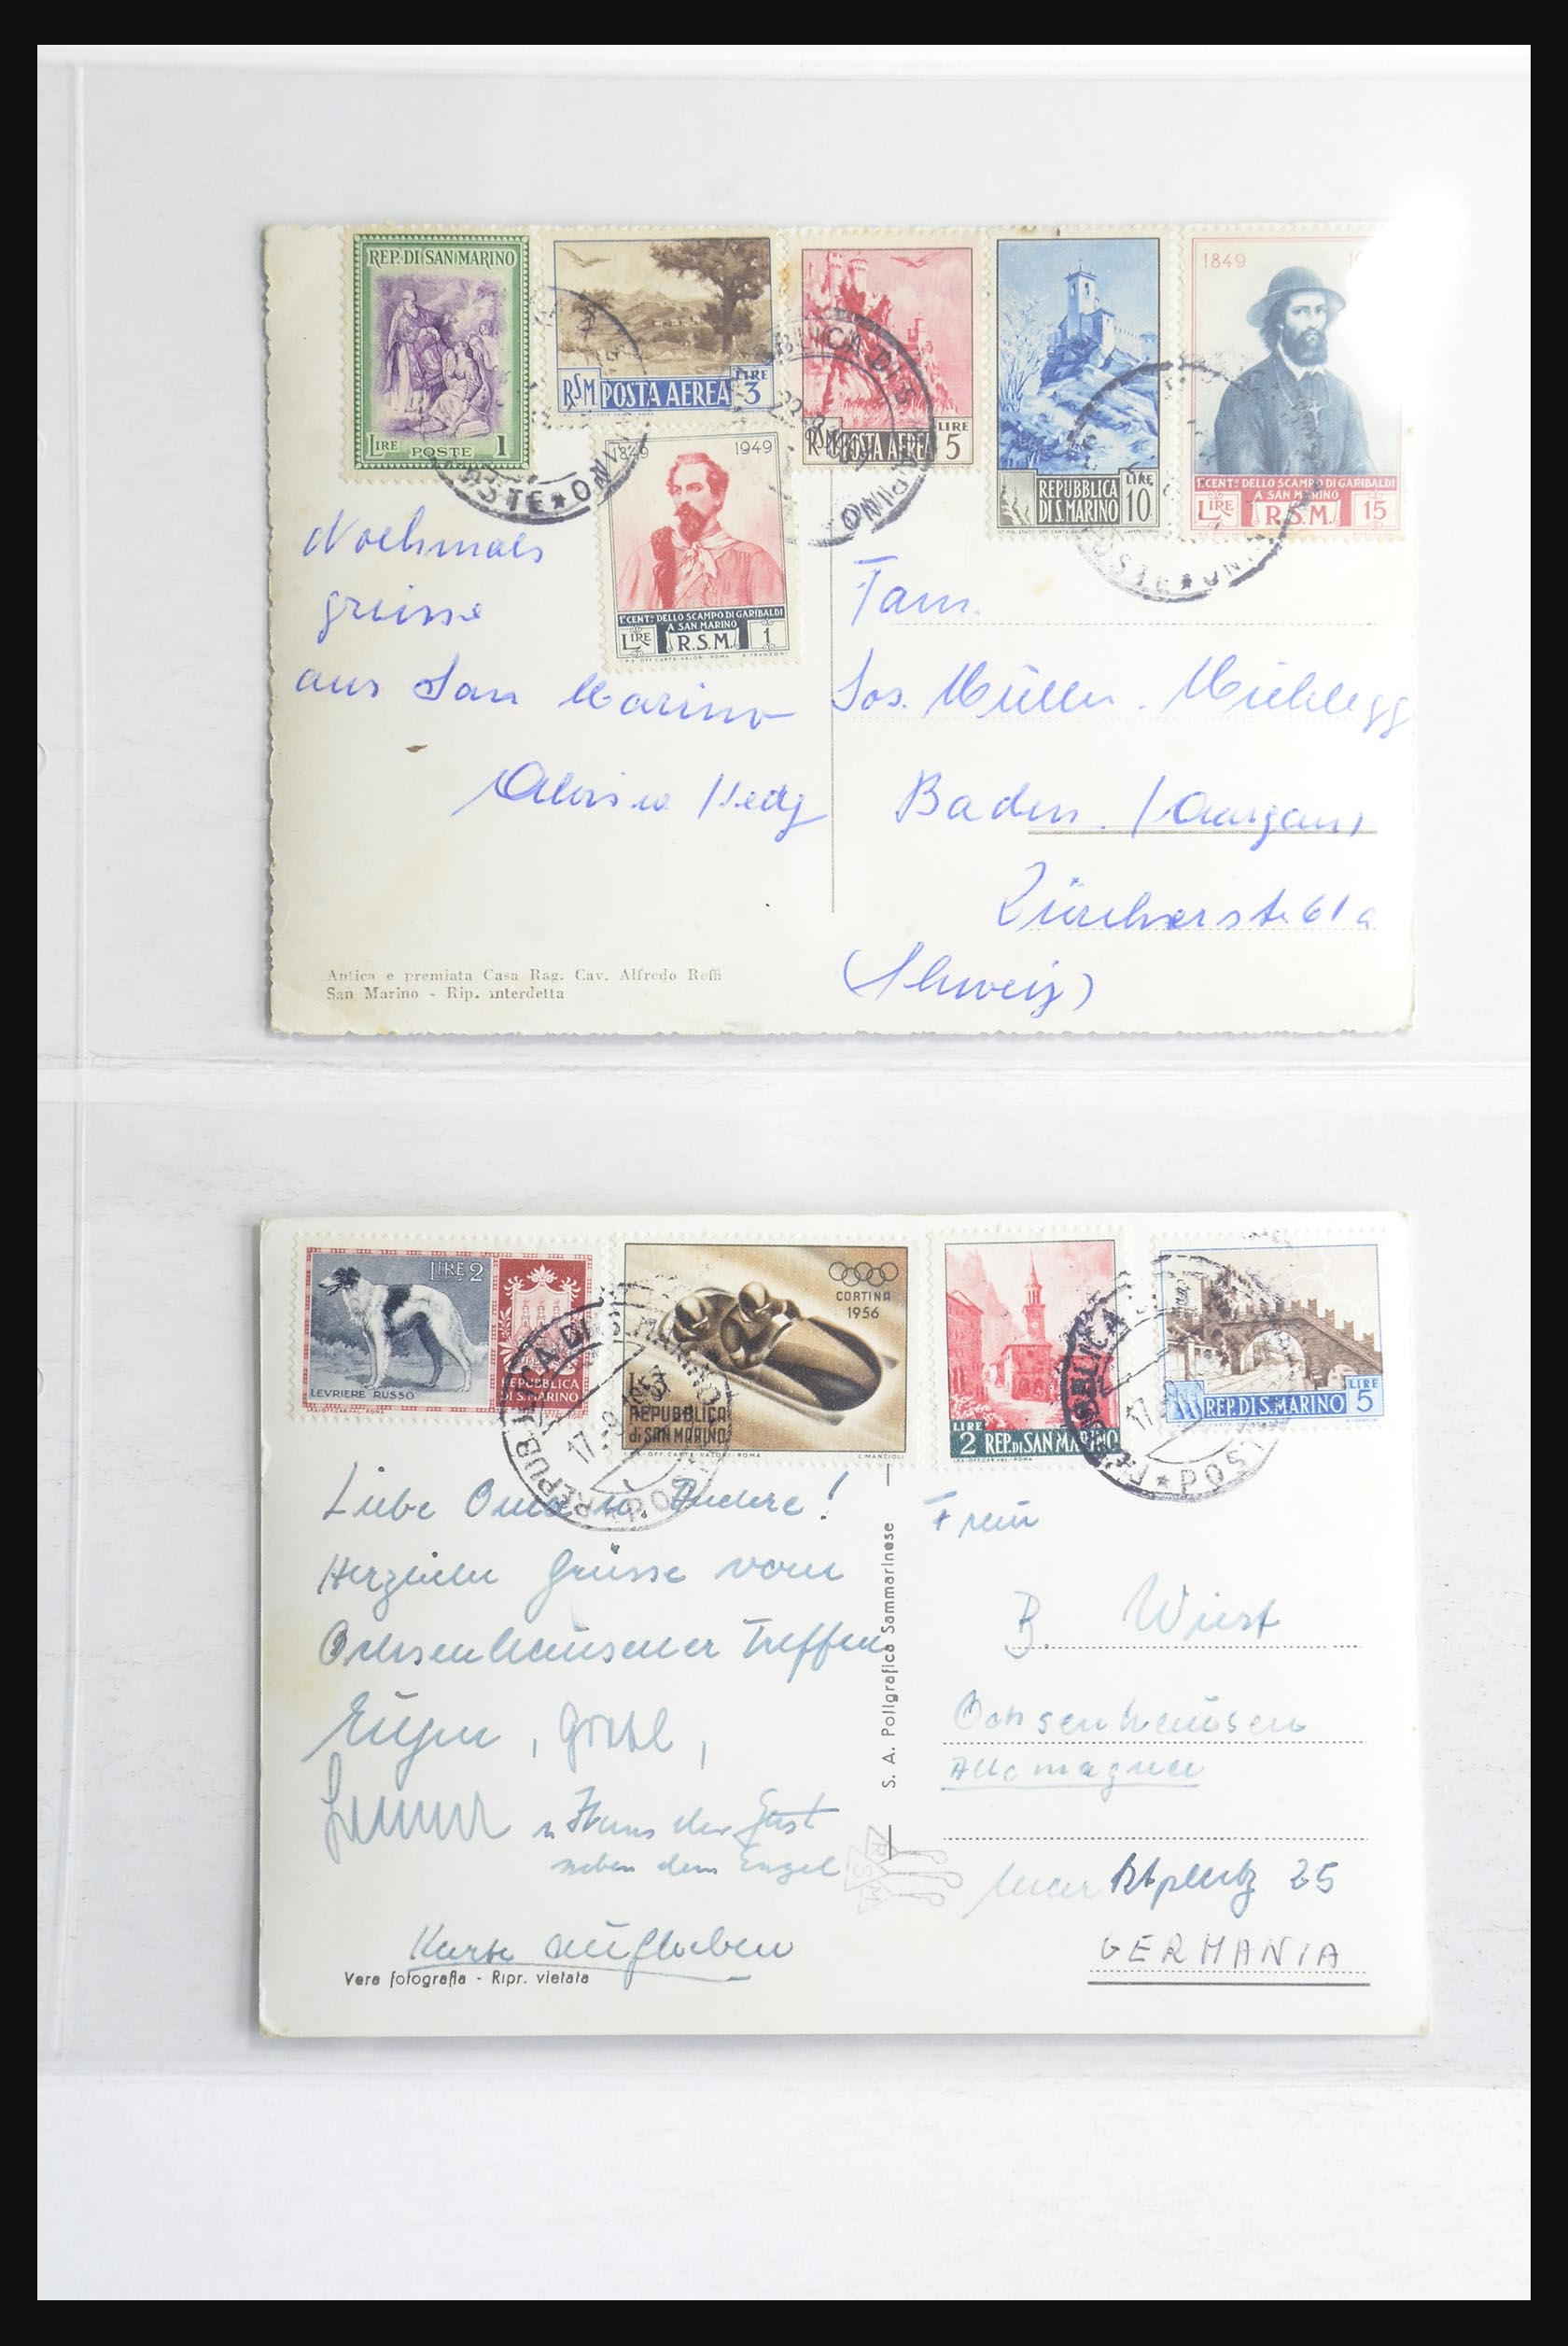 REP. DI SAN MARINO
LIRE POSTE 1
RSM POSTA AEREA LIRE 3
RSM POSTA AEREA LIRE 5
REPUBBLICA DI S. MARINO LIRE 10
1849
1º CENT.º DELLO SCAMPO DI GARIBALDI
A SAN MARINO
LIRE R.S.M. 15
1849 1949
1º CENT.º DELLO SCAMPO DI GARIBALDI
A SAN MARINO
LIRE R.S.M. 1
I.P.S. OFF. CARTE-VALORI-ROMA
Nochmals
grüsse
aus San Marino
Fam.
Jos. Müller. Mühlegg
Baden. (Aargau)
Zürcherstr 61a
(Schweiz)
Antica e premiata Casa Rag. Cav. Alfredo Reffi
San Marino - Rip. interdetta
LIRE 2
LEVRIERE RUSSO
REPUBBLICA
DI S. MARINO
CORTINA
1956
L. 3
REPUBBLICA
di SAN MARINO
I.P.S.-OFF. CARTE VALORI-ROMA C. MANCIOLI
LIRE
2 REP. DI SAN MARINO
REP. DI S. MARINO LIRE 5
REPUBBLICA DI S. MARINO
POSTE
Liebe Oma u. Andere!
Herzliche Grüsse vom
Ochsenhausener Treffen
Eugen, Gretl,
u Haus der Gast
neben dem Engel
Karte aufheben
Vera fotografia - Ripr. vietata
S. A. Poligrafica Sammarinese
RSM
Frau
B. Wüst
Ochsenhausen
Allemagne
Marktplatz 25
GERMANIA